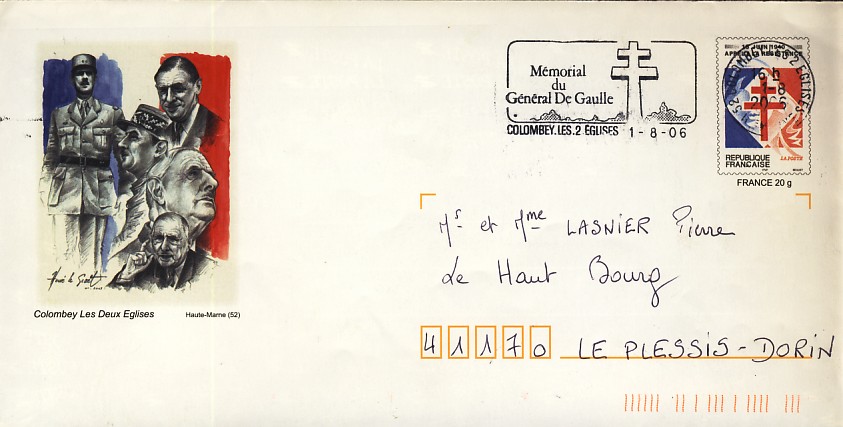 Mémorial
du
Général De Gaulle
COLOMBEY.LES.2 EGLISES 1-8-06
18 JUIN 1940
16 H
1-8
2006
REPUBLIQUE
FRANÇAISE
LA POSTE
FRANCE 20 g
Colombey Les Deux Eglises Haute-Marne (52)
Mr et Mme LASNIER Pierre
Le Haut Bourg
41170 LE PLESSIS-DORIN